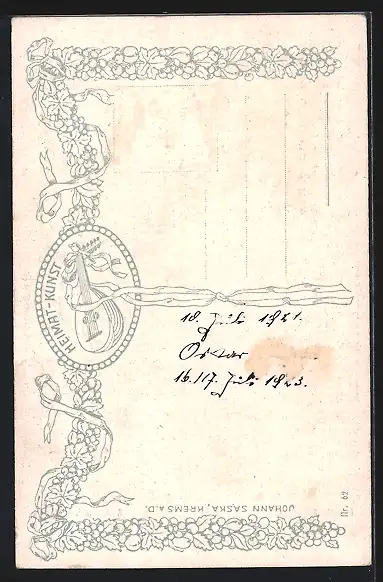 HEIMAT-KUNST
18. Juli 1921.
Oskar
16./17. Juli 1923.
JOHANN SASKA, KREMS A. D.
Nr. 62